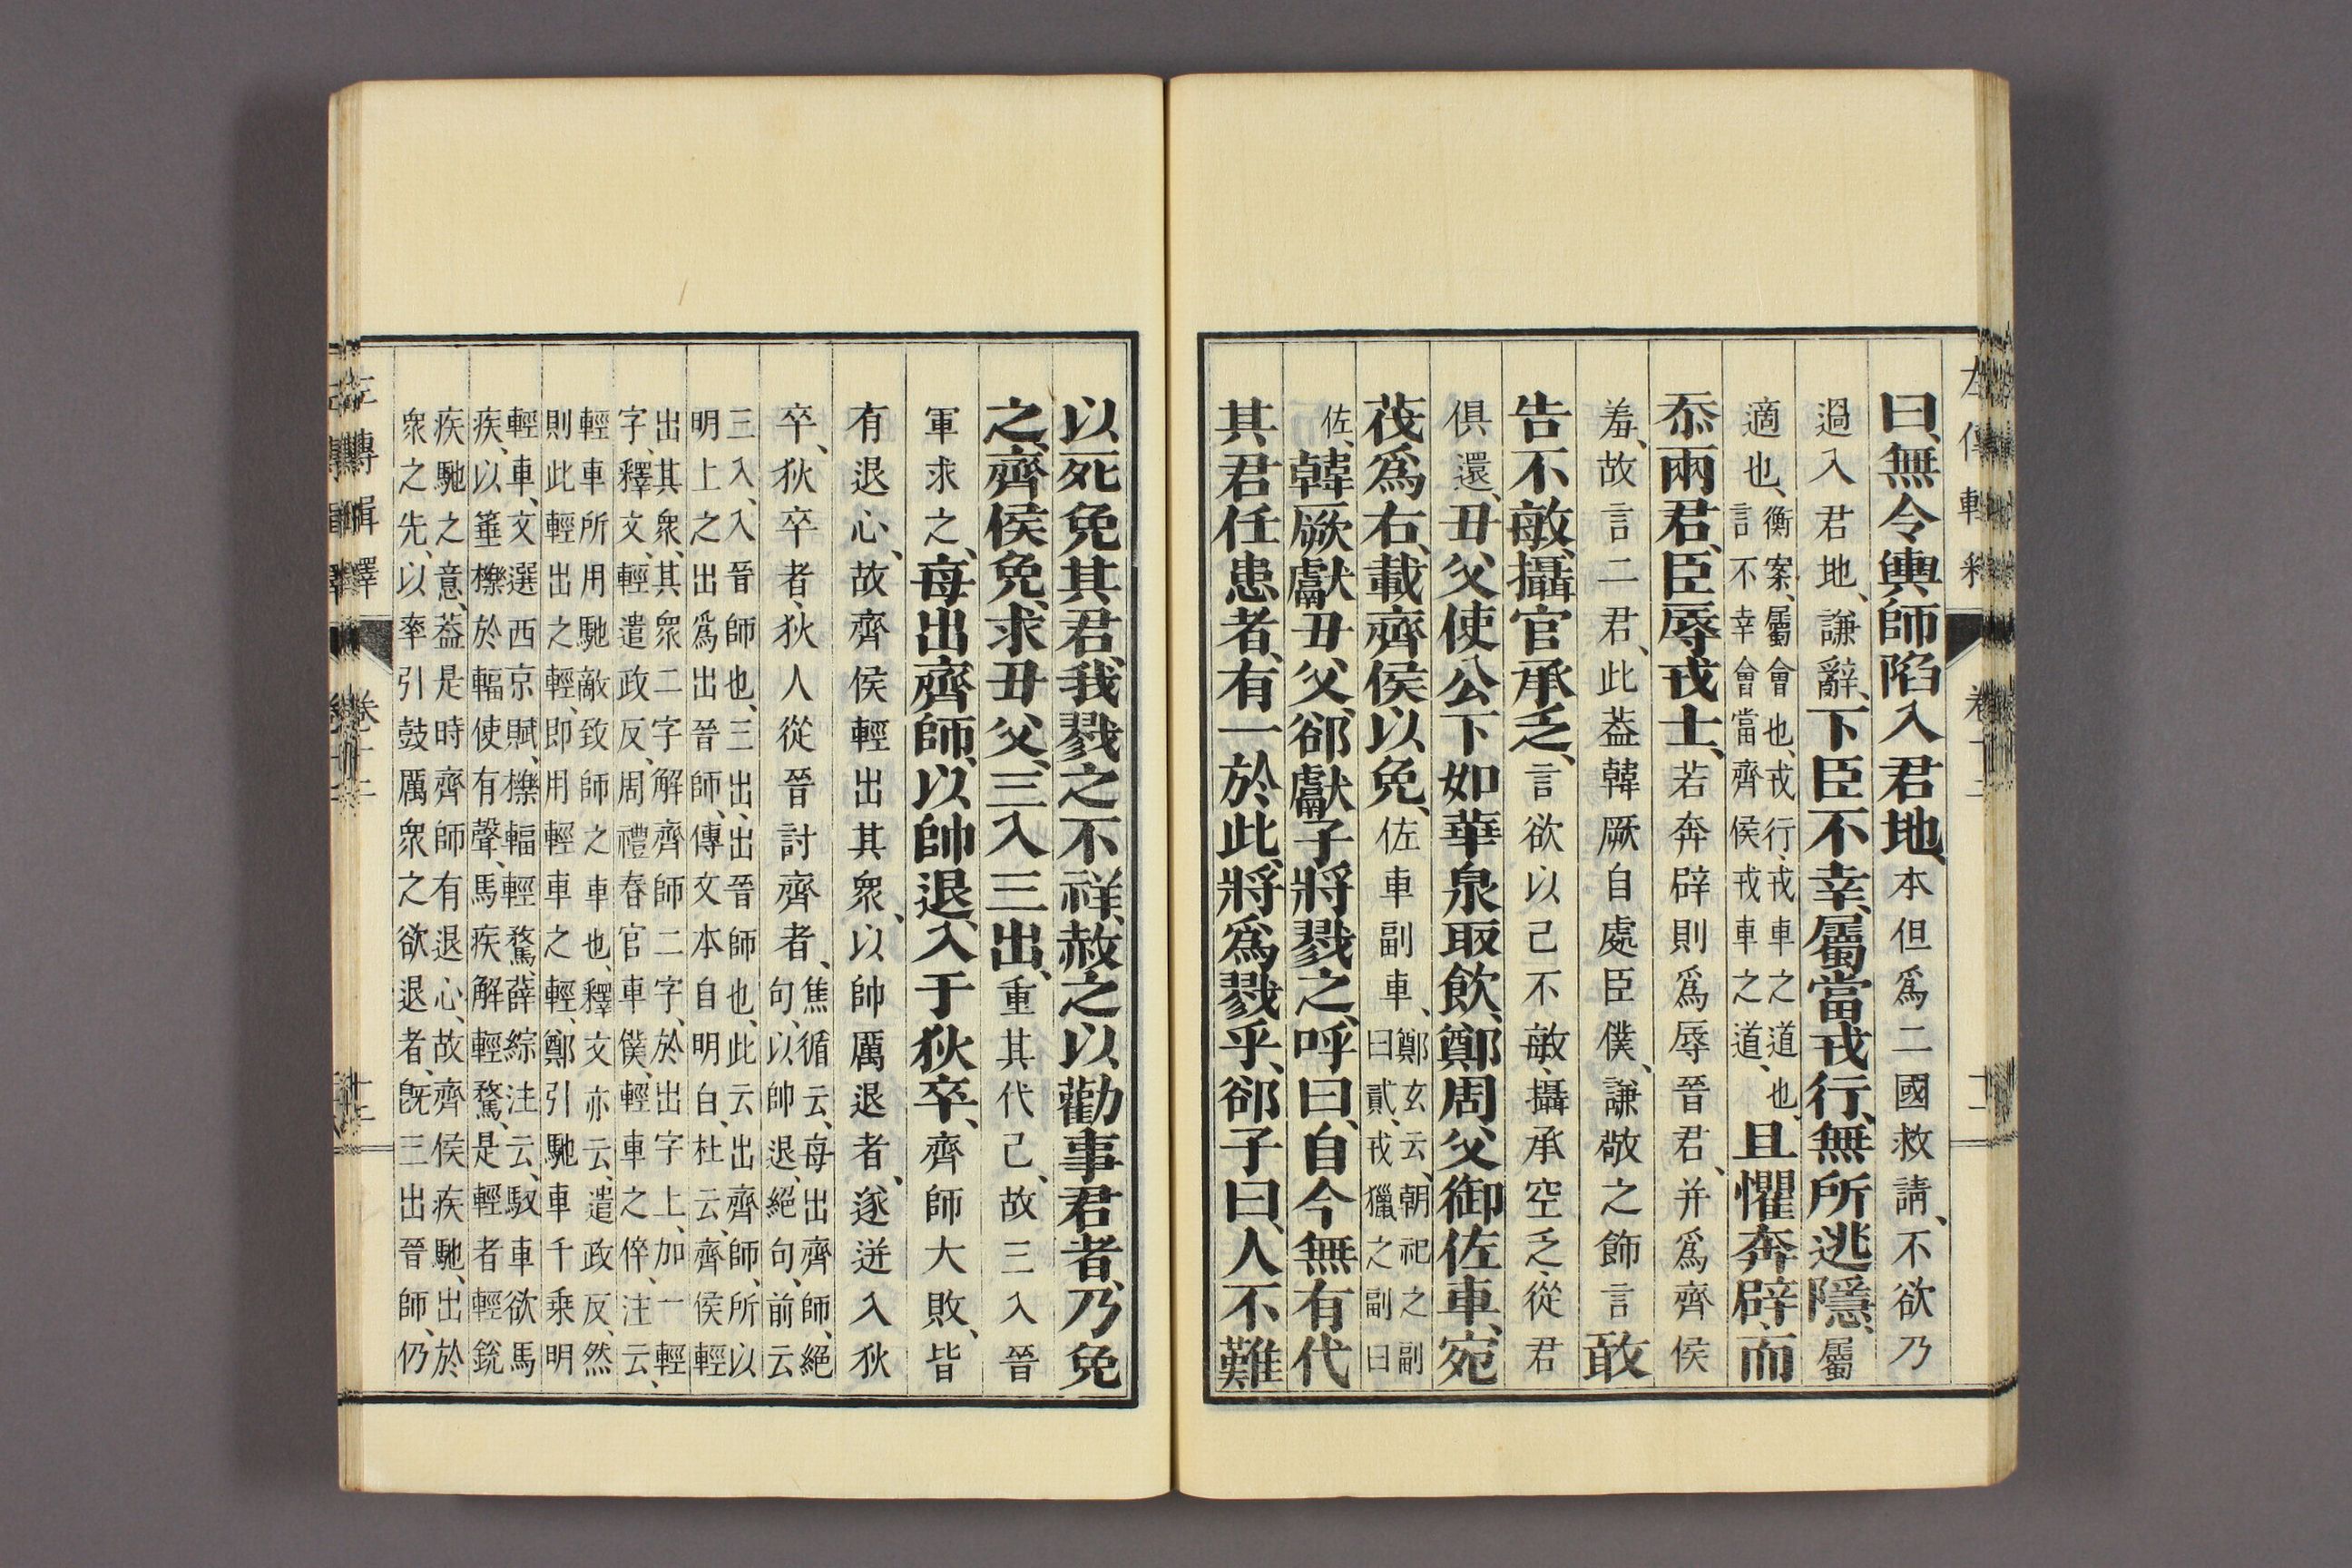 曰、無令輿師陷入君地、本但爲二國救請、不欲乃
過入君地、謙辭、下臣不幸、屬當戎行、無所逃隱、屬
適也、衡案、屬會也、戎行、戎車之道也、言不幸會當齊侯戎車之道、且懼奔辟、而
忝兩君、臣辱戎士、若奔辟則爲辱晉君、并爲齊侯
羞、故言二君、此葢韓厥自處臣僕、謙敬之飾言敢
告不敏、攝官承乏、言欲以己不敏、攝承空乏、從君
俱還、丑父使公下如華泉取飮、鄭周父御佐車、宛
茷爲右、載齊侯以免、佐車副車、鄭玄云、朝祀之副曰貳、戎獵之副曰
佐、韓厥獻丑父、郤獻子將戮之、呼曰、自今無有代
其君任患者、有一於此、將爲戮乎、郤子曰、人不難
以死免其君、我戮之不祥、赦之以勸事君者、乃免
之、齊侯免、求丑父、三入三出、重其代己、故三入晉
軍求之、每出齊師、以帥退、入于狄卒、齊師大敗、皆
有退心、故齊侯輕出其衆、以帥厲退者、遂迸入狄
卒、狄卒者、狄人從晉討齊者、焦循云、每出齊師、絕句、以帥退、絕句、前云
三入、入晉師也、三出、出晉師也、此云出齊師、所以明上之出爲出晉師、傳文本自明白、杜云、齊侯輕
出其衆、其衆二字解齊師二字、於出字上、加一輕字、釋文、輕遣政反、周禮春官車僕、輕車之倅、注云、
輕車所用馳敵致師之車也、釋文亦云、遣政反、然則此輕出之輕、卽用輕車之輕、鄭引馳車千乘明
輕車、文選西京賦、櫟輻輕騖、薛綜注云、馭車欲馬疾、以箠櫟於輻、使有聲、馬疾解輕騖、是輕者輕銳
疾馳之意、葢是時齊師有退心、故齊侯疾馳、出於衆之先、以率引鼓厲衆之欲退者、旣三出晉師、仍
左傳輯釋 卷十二